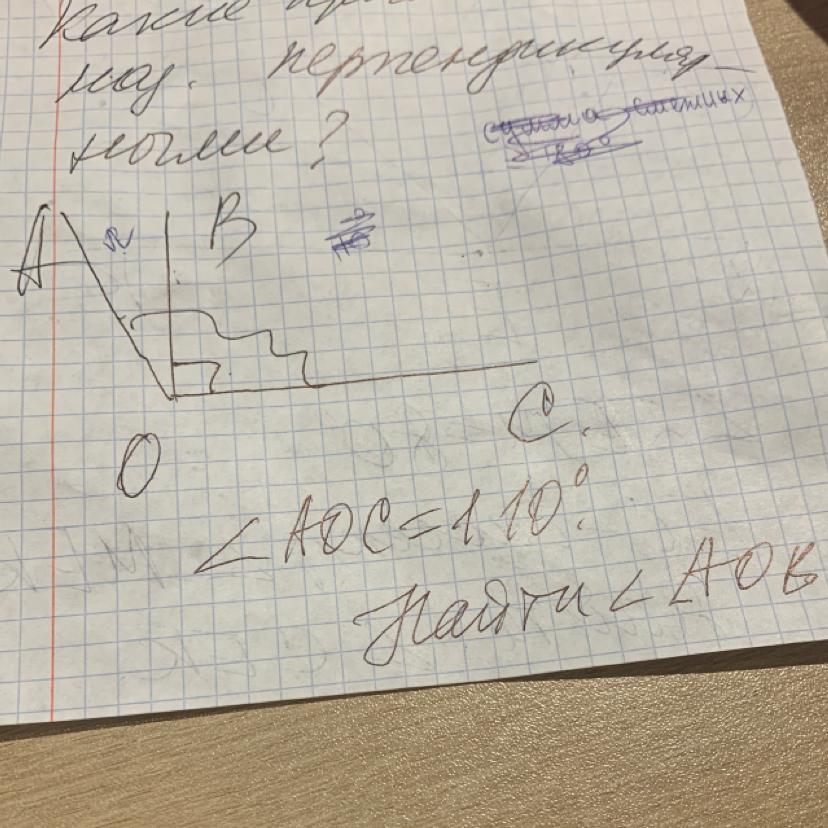 Какие
наз. перпендикуляр-
ными?
сумма смежных
180°
A
B
O
C.
∠AOC=110°.
Найти ∠AOB